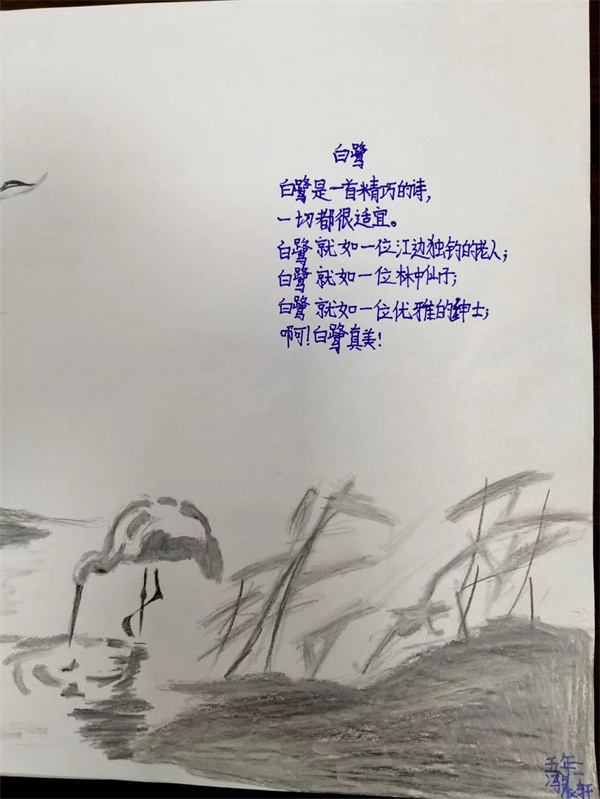 白鹭
白鹭是一首精巧的诗，
一切都很适宜。
白鹭就如一位江边独钓的老人；
白鹭就如一位林中仙子；
白鹭就如一位优雅的绅士；
啊！白鹭真美！
五年一
冯晨轩